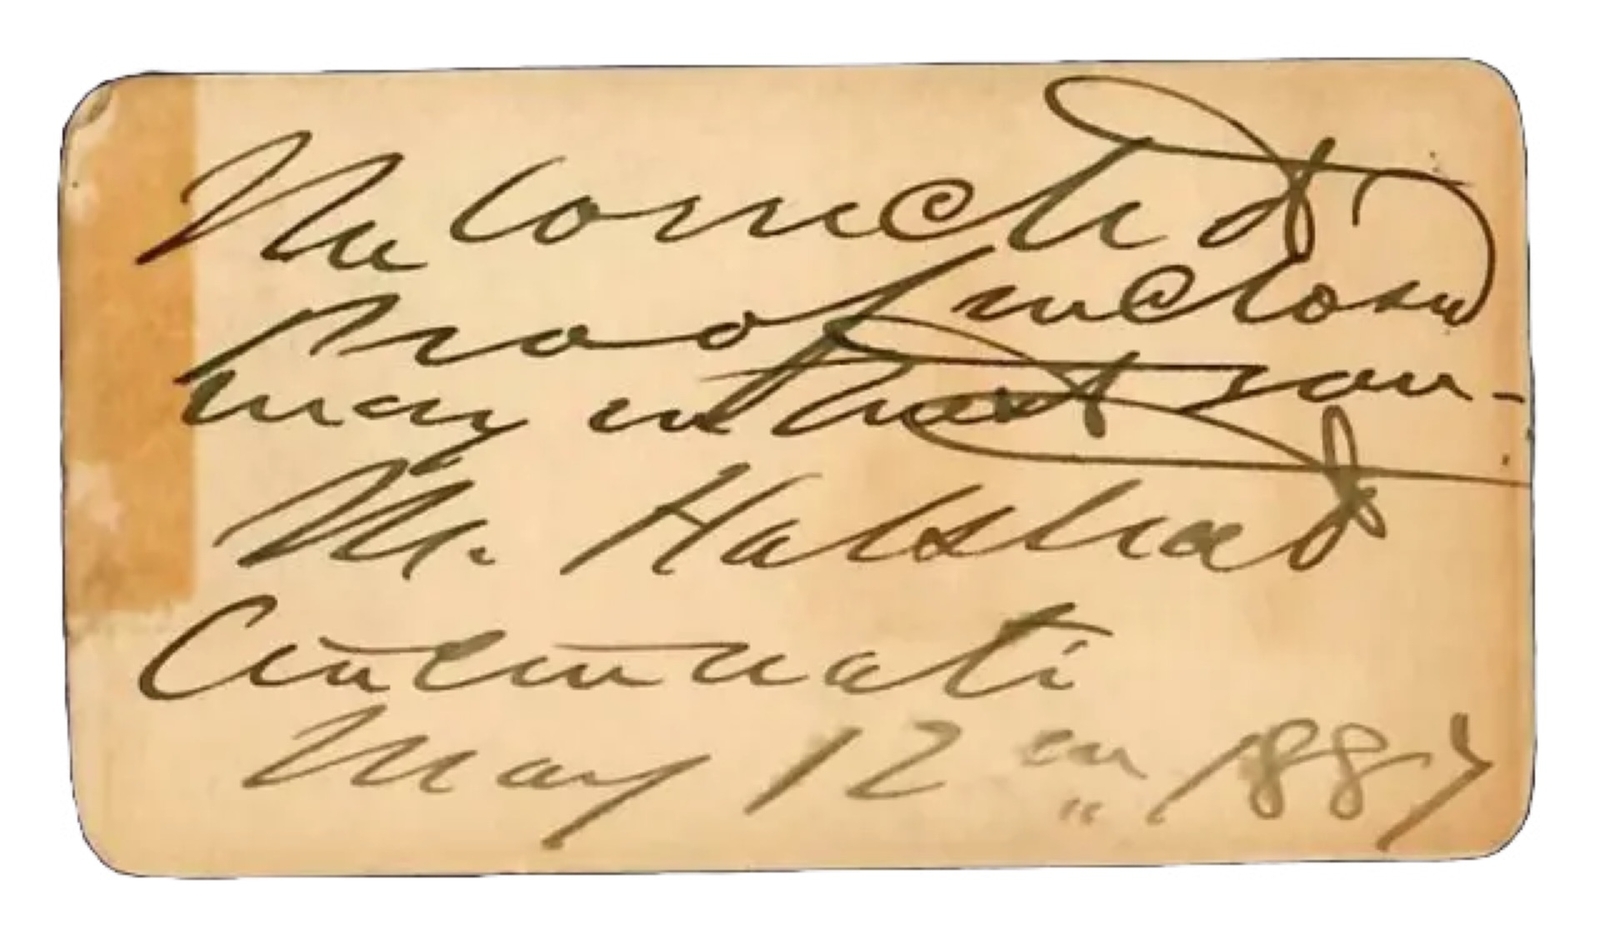 The corrected
proof inclosed
may interest you -
M. Halstead
Cincinnati
May 12th 1887